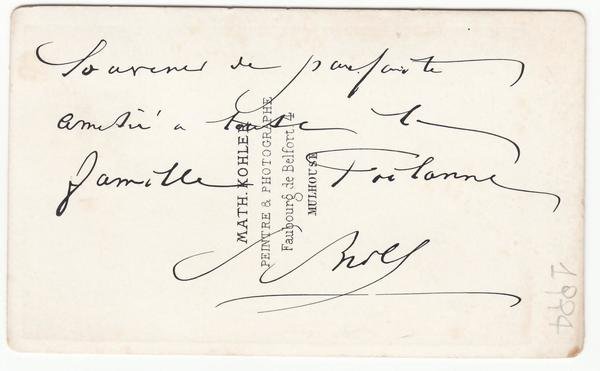 Souvenir de parfaite
amitié a toute la
famille
MATH. KOHLER
PEINTRE & PHOTOGRAPHE
Faubourg de Belfort, 4
MULHOUSE